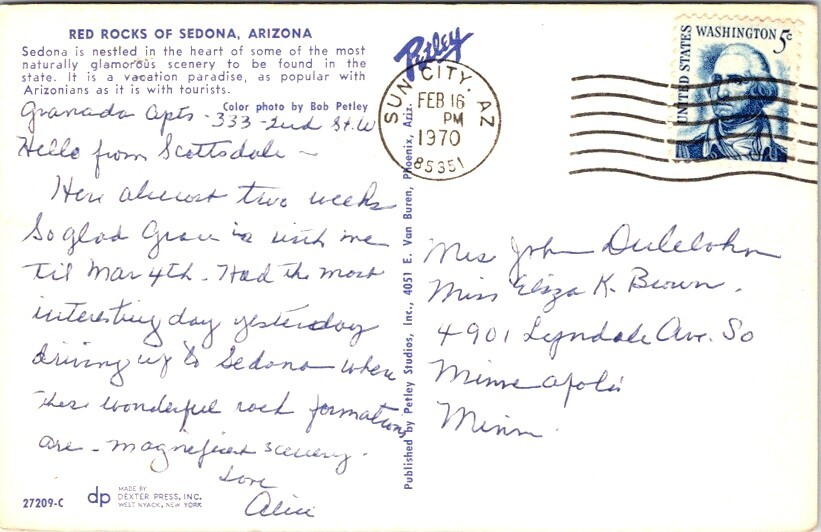 RED ROCKS OF SEDONA, ARIZONA
Sedona is nestled in the heart of some of the most
naturally glamorous scenery to be found in the
state. It is a vacation paradise, as popular with
Arizonians as it is with tourists.
Color photo by Bob Petley
Granada Apts - 333 - 2nd St. W
Hello from Scottsdale -
Here almost two weeks
So glad Grace is with me
til Mar 4th - Had the most
interesting day yesterday
driving up to Sedona where
these wonderful rock formations
are - magnificent scenery.
Love
Alice
27209-C
dp
MADE BY
DEXTER PRESS, INC.
WEST NYACK, NEW YORK
Petley
Published by Petley Studios, Inc., 4051 E. Van Buren, Phoenix, Ariz.
SUN CITY, AZ
FEB 16
PM
1970
85351
UNITED STATES
WASHINGTON 5c
Mrs John
Miss Eliza K. Brown.
4901 Lyndale Ave. So
Minneapolis
Minn.